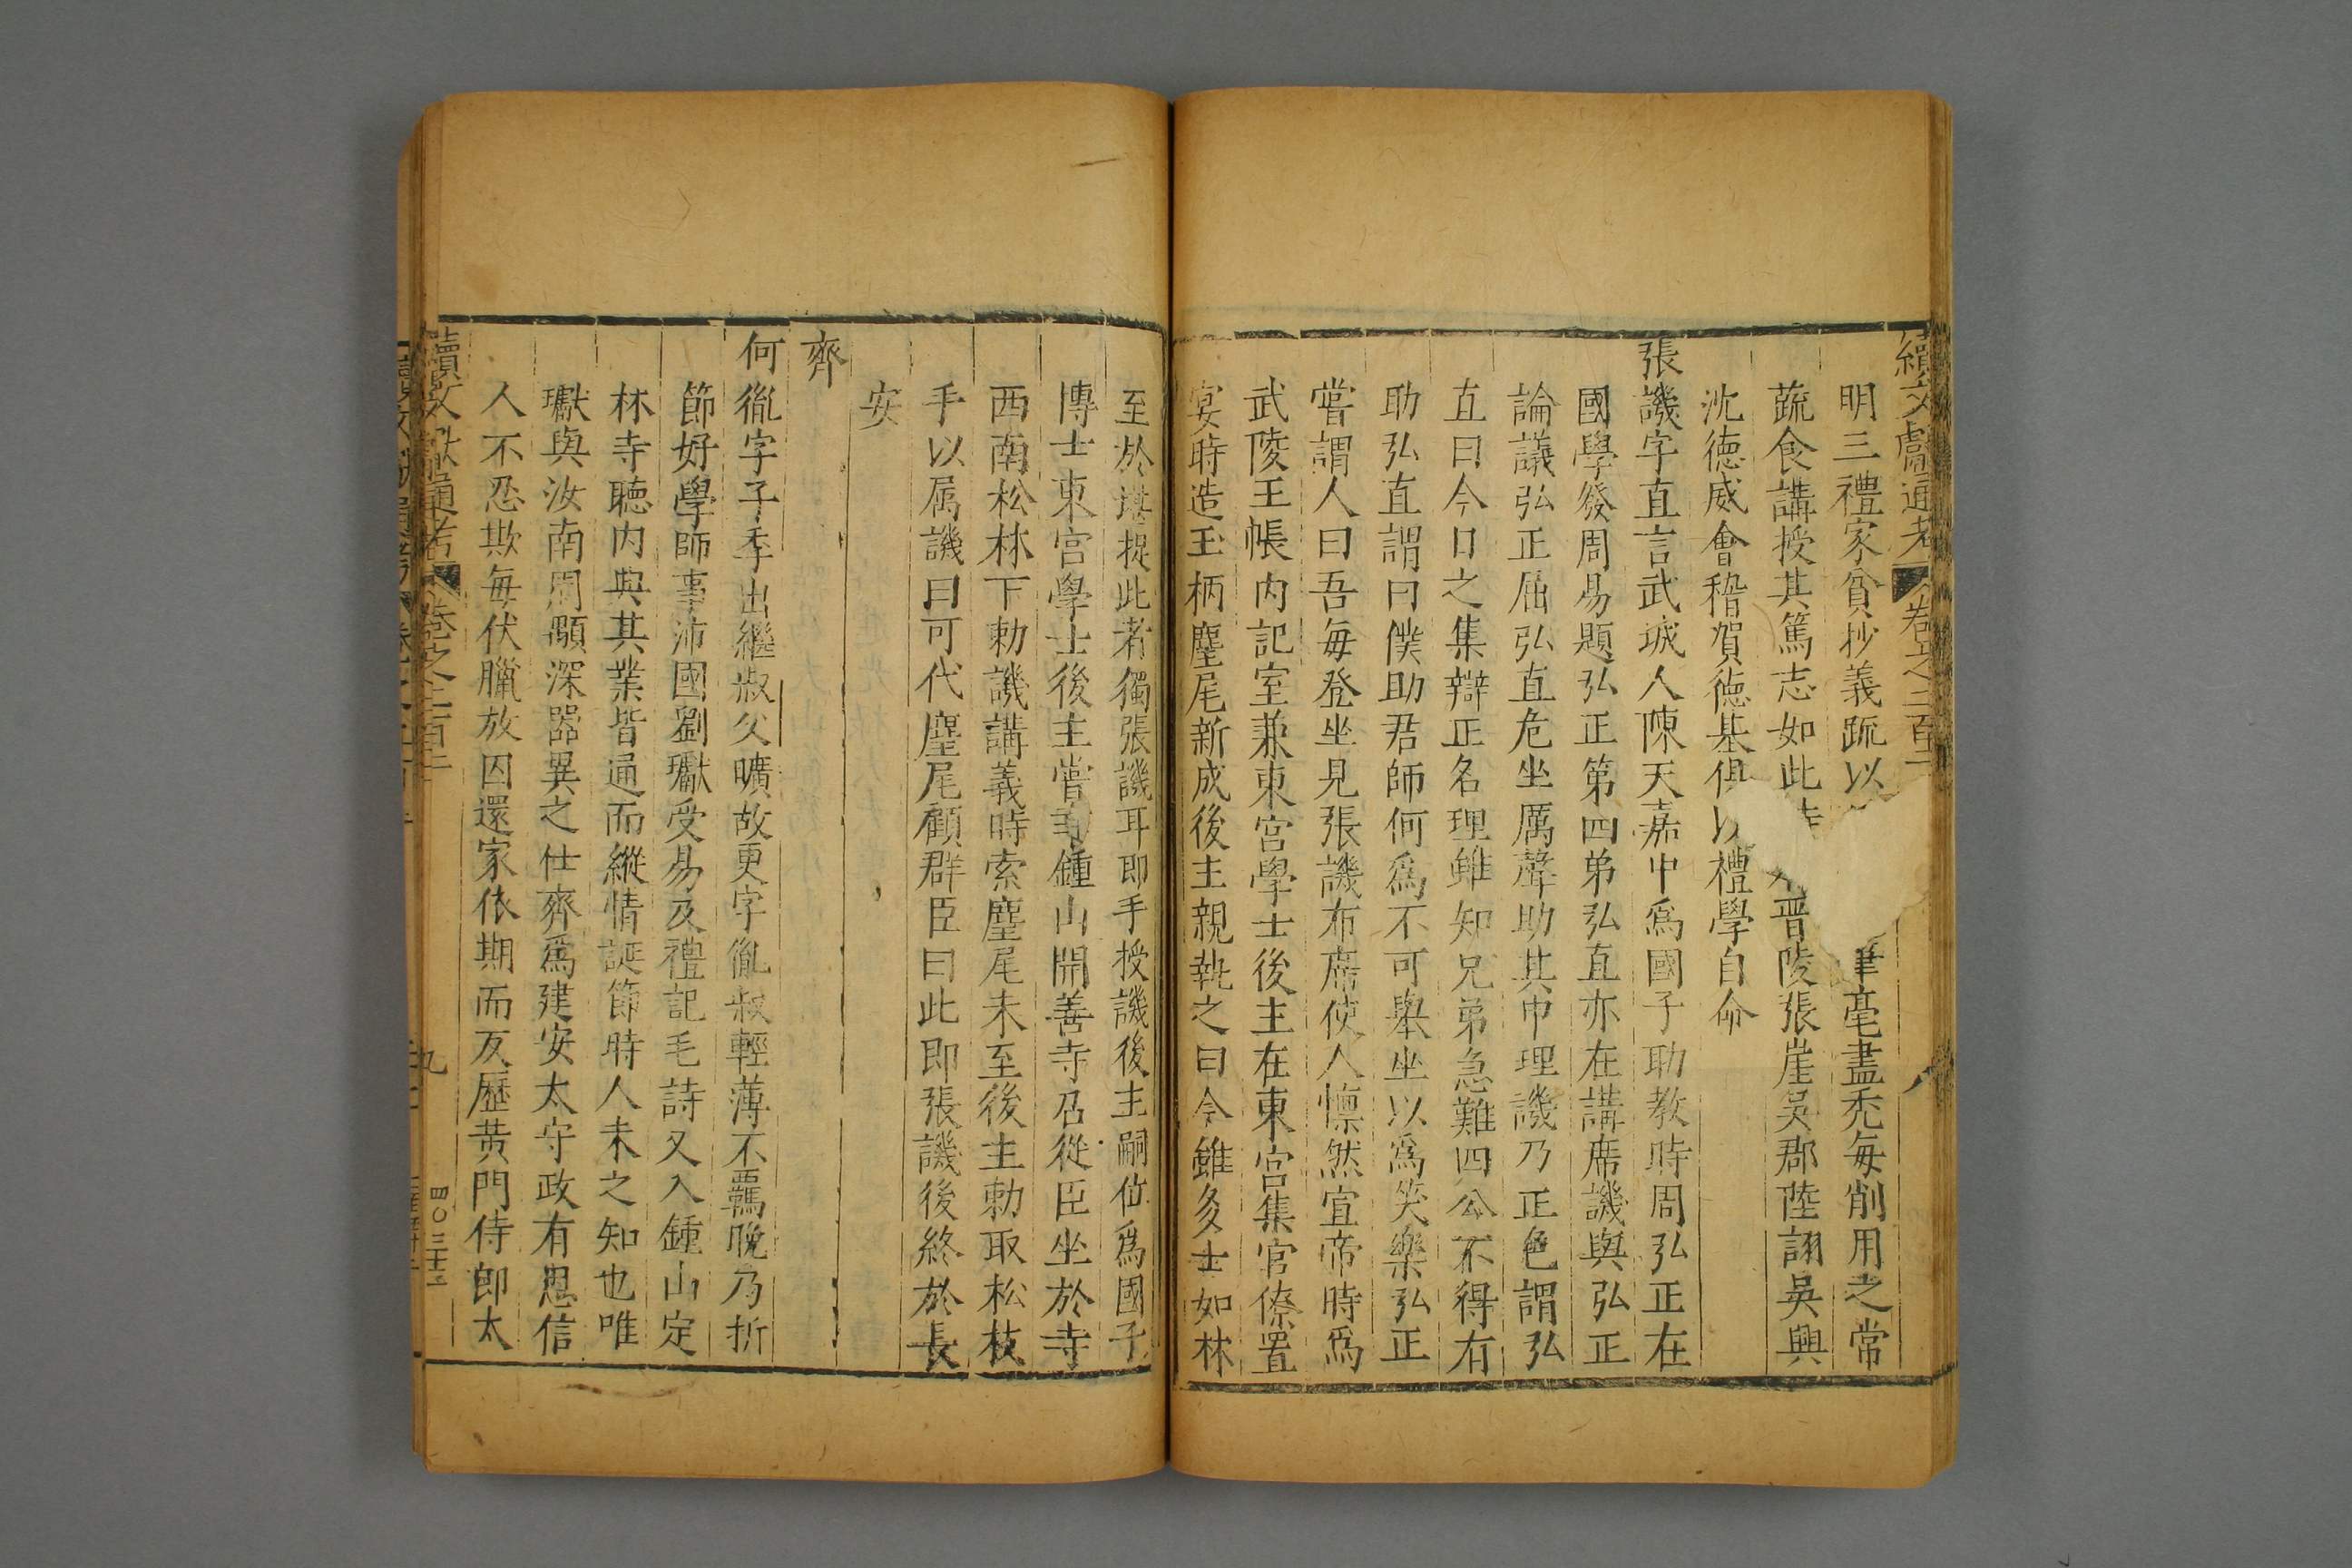 續文獻通考 卷之二百二 八
明三禮家貧抄義䟽以 筆毫盡禿每削用之常
蔬食講授其篤志如此 晋陵張崖吳郡陸詡吳興
沈德威會稽賀德基俱以禮學自命
張譏字直言武城人陳天嘉中爲國子助教時周弘正在
國學發周易題弘正第四弟弘直亦在講席譏與弘正
論議弘正屈弘直危坐厲聲助其申理譏乃正色謂弘
直曰今日之集辯正名理雖知兄弟急難四公不得有
助弘直謂曰僕助君師何爲不可舉坐以爲笑樂弘正
嘗謂人曰吾每登坐見張譏布席使人懔然宣帝時爲
武陵王帳内記室兼東宮學士後主在東宮集官僚置
宴時造玉柄麈尾新成後主親執之曰今雖多士如林
至於堪捉此者獨張譏耳即手授譏後主嗣位爲國子
博士東宮學士後主嘗幸鍾山開善寺召從臣坐於寺
西南松林下勅譏講義時索麈尾未至後主勅取松枝
手以屬譏曰可代麈尾顧群臣曰此即張譏後終於長
安
齊
何胤字子季出繼叔父曠故更字胤叔輕薄不羈晚乃折
節好學師事沛國劉瓛受易及禮記毛詩又入鍾山定
林寺聽内典其業皆通而縱情誕節時人未之知也唯
瓛與汝南周顒深器異之仕齊爲建安太守政有恩信
人不忍欺每伏臘放囚還家依期而反歷黃門侍郎太
續文獻通考 卷之二百二 九
四〇三十二